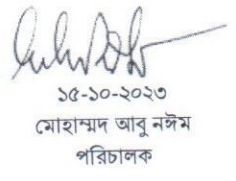 ১৫-১০-২০২৩
মোহাম্মদ আবু নঈম
পরিচালক